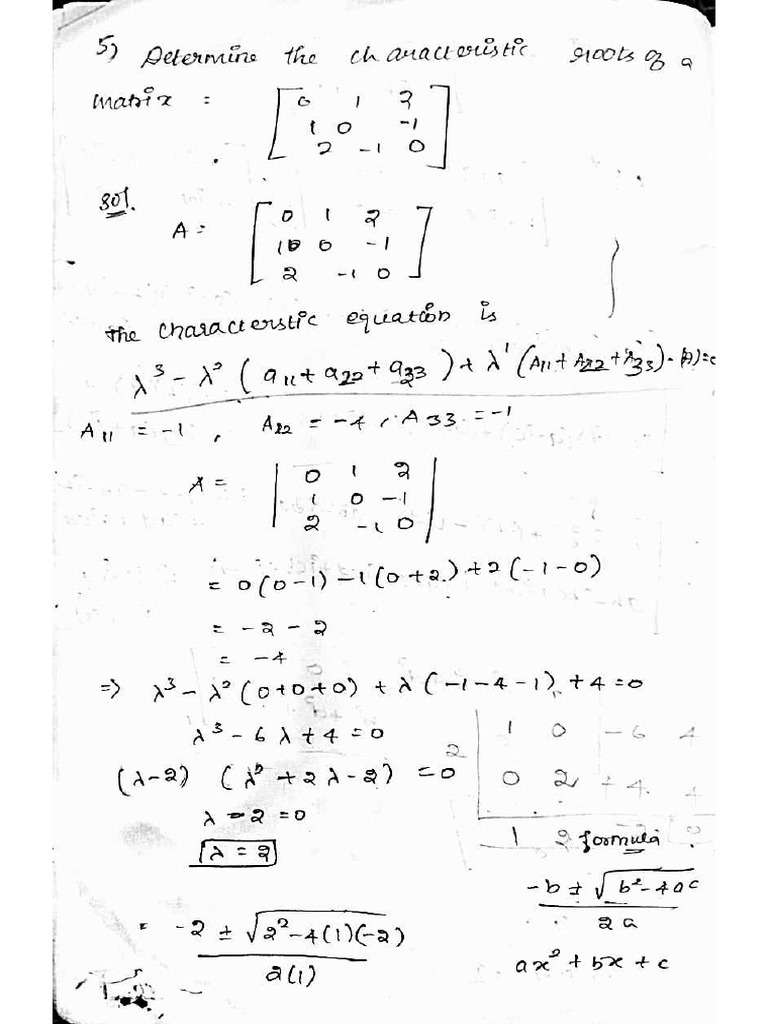 5) Determine the characteristic roots of a
matrix : [ 0 1 2
1 0 -1
2 -1 0 ]
Sol.
A = [ 0 1 2
1 0 0 -1
2 -1 0 ]
The characterstic equation is
λ³ - λ² (a₁₁ + a₂₂ + a₃₃) + λ¹ (A₁₁ + A₂₂ + A₃₃) - |A| = 0
A₁₁ = -1 , A₂₂ = -4 , A₃₃ = -1
A = | 0 1 2
1 0 -1
2 -1 0 |
= 0(0-1) -1(0+2) +2(-1-0)
= -2 - 2
= -4
⇒ λ³ - λ²(0+0+0) + λ(-1-4-1) + 4 = 0
λ³ - 6λ + 4 = 0
(λ-2) (λ² + 2λ - 2) = 0
λ - 2 = 0
λ = 2
2 | 1 0 -6 4
0 2 +4
1 2
formula
-b ± √b² - 4ac
2a
ax² + bx + c
= -2 ± √2² - 4(1)(-2)
2(1)